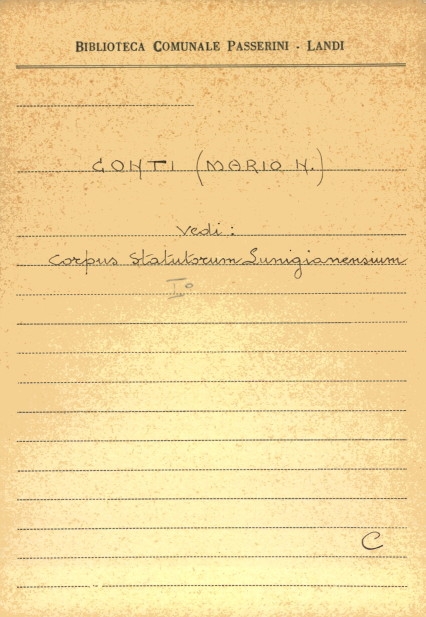 BIBLIOTECA COMUNALE PASSERINI - LANDI
CONTI (MARIO N.)
Vedi:
Corpus Statutorum Lunigianensium
Iº
C